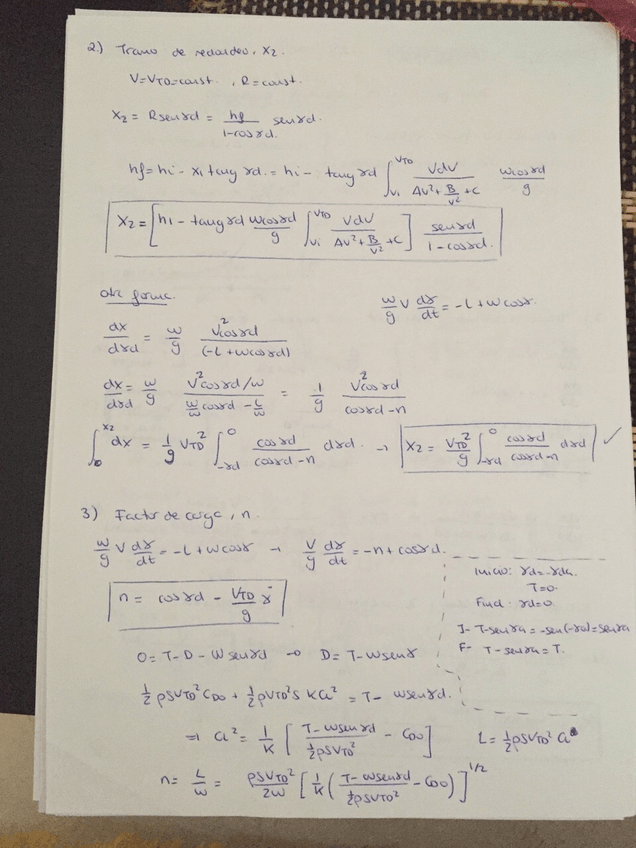 2.) Tramo de redondeo, X2.
V=VTD=const. , R=const.
X2 = Rsenγd = hf / (1-cosγd) senγd.
hf = hi - x1 tang γd. = hi - tang γd ∫_{V1}^{VTD} VdV / (AV²+B/V²+C) Wcosγd / g
X2 = [hi - tang γd Wcosγd / g ∫_{V1}^{VTD} VdV / (AV²+B/V²+C)] senγd / (1-cosγd.)
otr forma.
W/g V dγ/dt = -L+Wcosγ.
dx/dγd = W/g V²cosγd / (-L+Wcosγd)
dx/dγd = W/g (V²cosγd/W) / (W/W cosγd - L/W) = 1/g V²cosγd / (cosγd-n)
∫_{0}^{X2} dx = 1/g VTD² ∫_{-γd}^{0} cosγd / (cosγd-n) dγd. → X2 = VTD²/g ∫_{-γd}^{0} cosγd / (cosγd-n) dγd ✓
3) Factor de carga, n.
W/g V dγ/dt = -L+Wcosγ → V/g dγ/dt = -n+cosγd.
n = cosγd - VTD/g γ̇
Inicio: γd=-γda.
T=0.
Final. γd=0.
I- T-senγa = -sen(-γa)=senγa
F- T-senγa=T.
0=T-D-Wsenγd → D=T-Wsenγ
½ρSVTD²CD0 + ½ρVTD²S KCl² = T- Wsenγd.
⇒ Cl² = 1/K [(T-Wsenγd) / (½ρSVTD²) - CD0]
L=½ρSVTD² Cl
n= L/W = ρSVTD²/2W [1/K ((T-Wsenγd) / (½ρSVTD²) - CD0)]^1/2